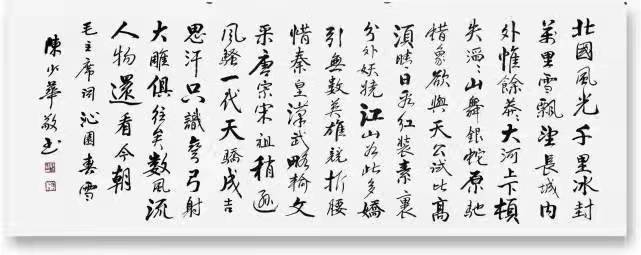 北國風光千里冰封
萬里雪飄望長城內
外惟餘莽〻大河上下頓
失滔〻山舞銀蛇原馳
蜡象欲與天公試比高
須晴日看紅裝素裹
分外妖嬈江山如此多嬌
引無數英雄競折腰
惜秦皇漢武略輸文
采唐宗宋祖稍遜
風騷一代天驕成吉
思汗只識彎弓射
大雕俱往矣數風流
人物還看今朝
毛主席詞沁園春雪
陳少華敬书